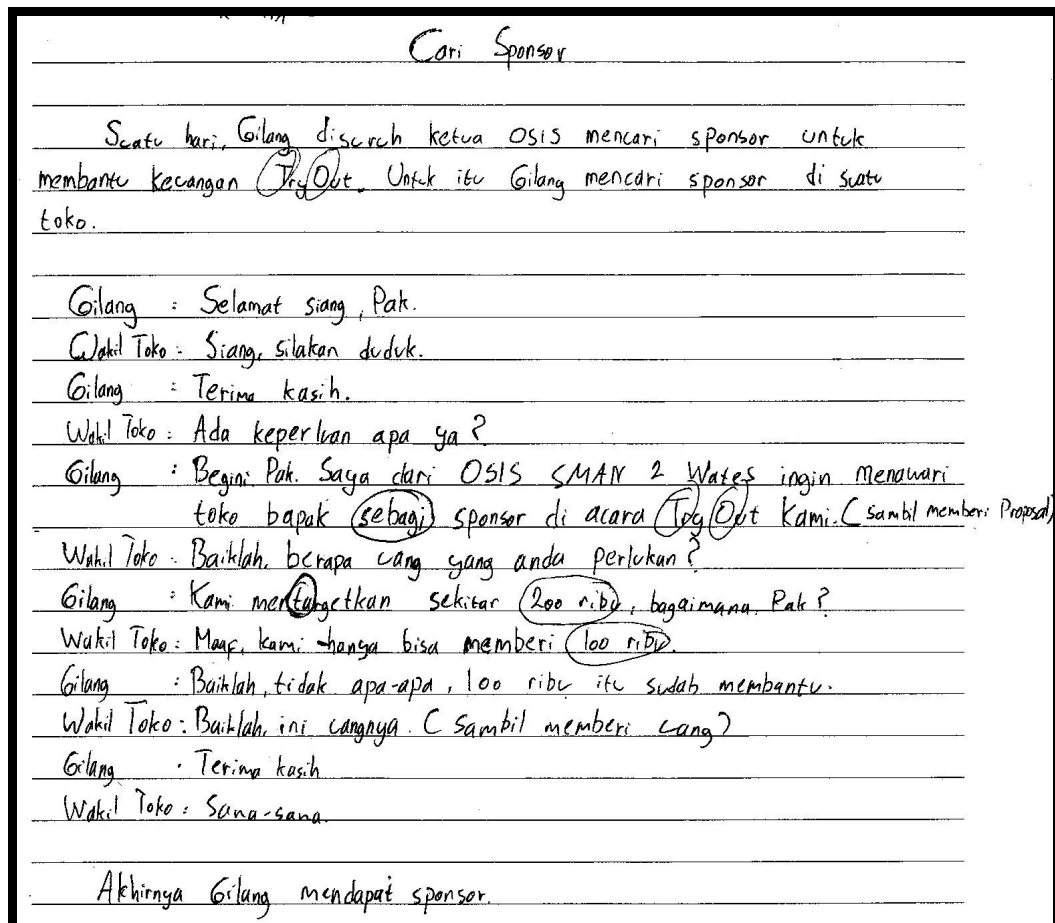 Cari Sponsor
Suatu hari, Gilang disuruh ketua OSIS mencari sponsor untuk
membantu keuangan Try Out. Untuk itu Gilang mencari sponsor di suatu
toko.
Gilang : Selamat siang, Pak.
Wakil Toko : Siang, silakan duduk.
Gilang : Terima kasih.
Wakil Toko : Ada keperluan apa ya?
Gilang : Begini Pak. Saya dari OSIS SMAN 2 Wates ingin menawari
toko bapak sebagi sponsor di acara Try Out kami. (sambil memberi Proposal)
Wakil Toko : Baiklah, berapa uang yang anda perlukan?
Gilang : Kami mentargetkan sekitar 200 ribu, bagaimana, Pak?
Wakil Toko : Maaf, kami hanya bisa memberi 100 ribu.
Gilang : Baiklah, tidak apa-apa, 100 ribu itu sudah membantu.
Wakil Toko : Baiklah, ini uangnya. (sambil memberi uang)
Gilang : Terima kasih
Wakil Toko : Sama-sama.
Akhirnya Gilang mendapat sponsor.